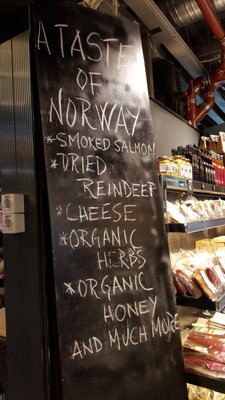 A TASTE
OF
NORWAY
*SMOKED SALMON
*DRIED
REINDEER
*CHEESE
*ORGANIC
HERBS
*ORGANIC
HONEY
AND MUCH MORE